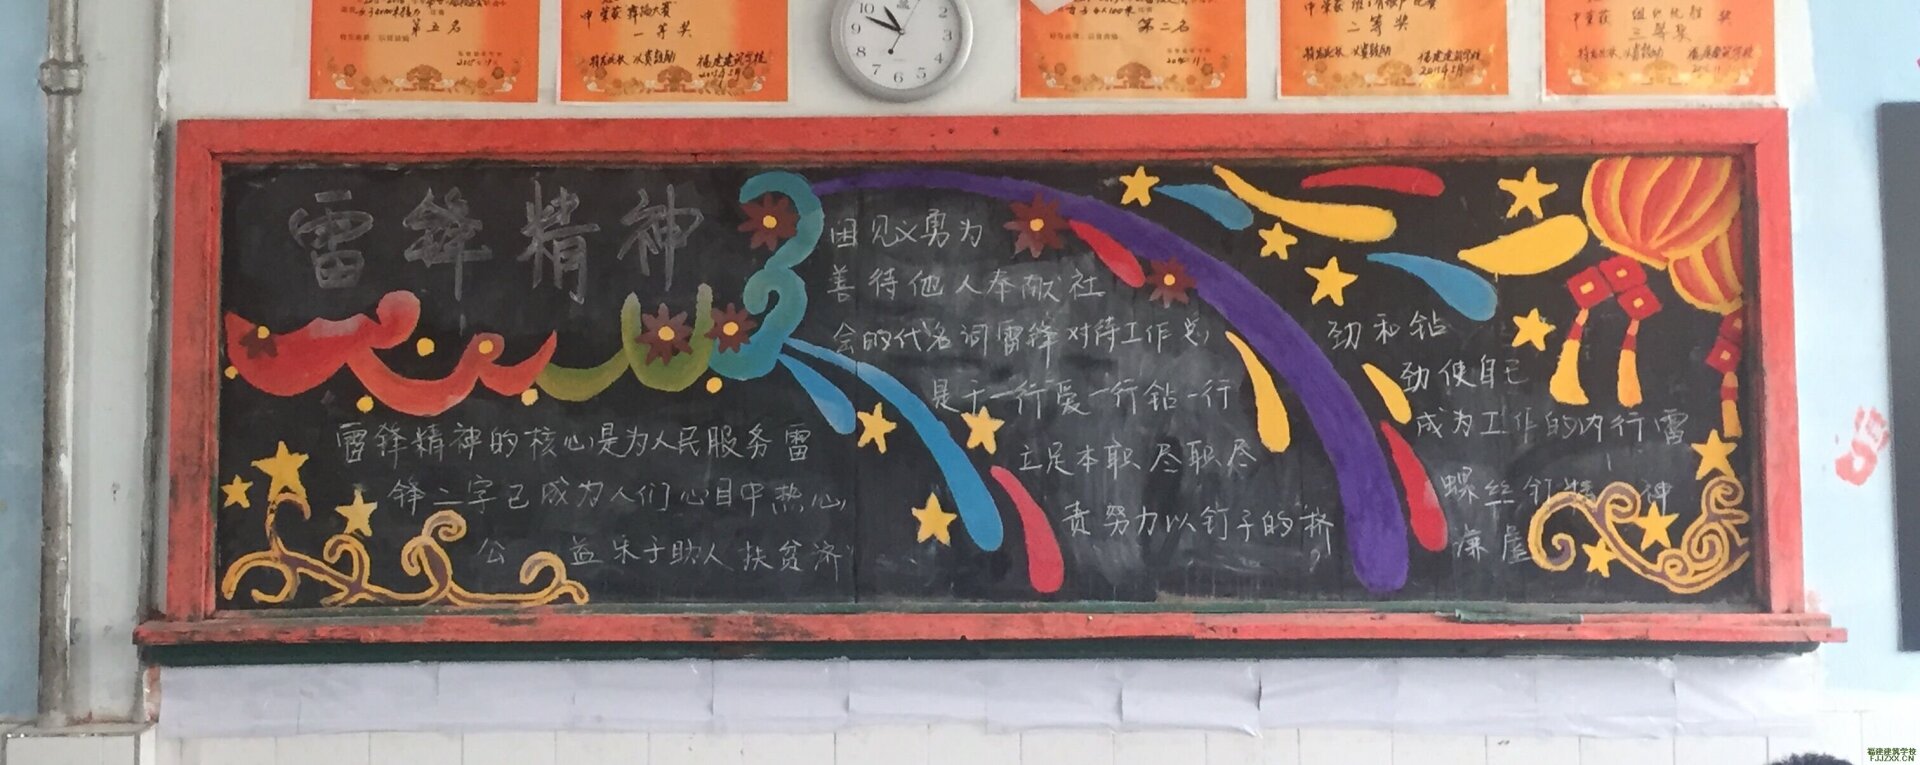 第五名
一等奖
特发此状,以资鼓励
福建建筑学校
2015年5月
10
2
9
3
8
4
7
6
5
第二名
二等奖
特发此状,以资鼓励
福建建筑学校
2015年5月
三等奖
雷锋精神
雷锋精神的核心是为人民服务雷
锋二字已成为人们心目中热心
公 益乐于助人扶贫济
困见义勇为
善待他人奉献社
会的代名词雷锋对待工作总
是干一行爱一行钻一行
立足本职尽职尽
责努力以钉子的"挤
劲和钻
劲使自己
成为工作的内行雷
螺丝钉精 神
福建建筑学校
FJJZXX.CN